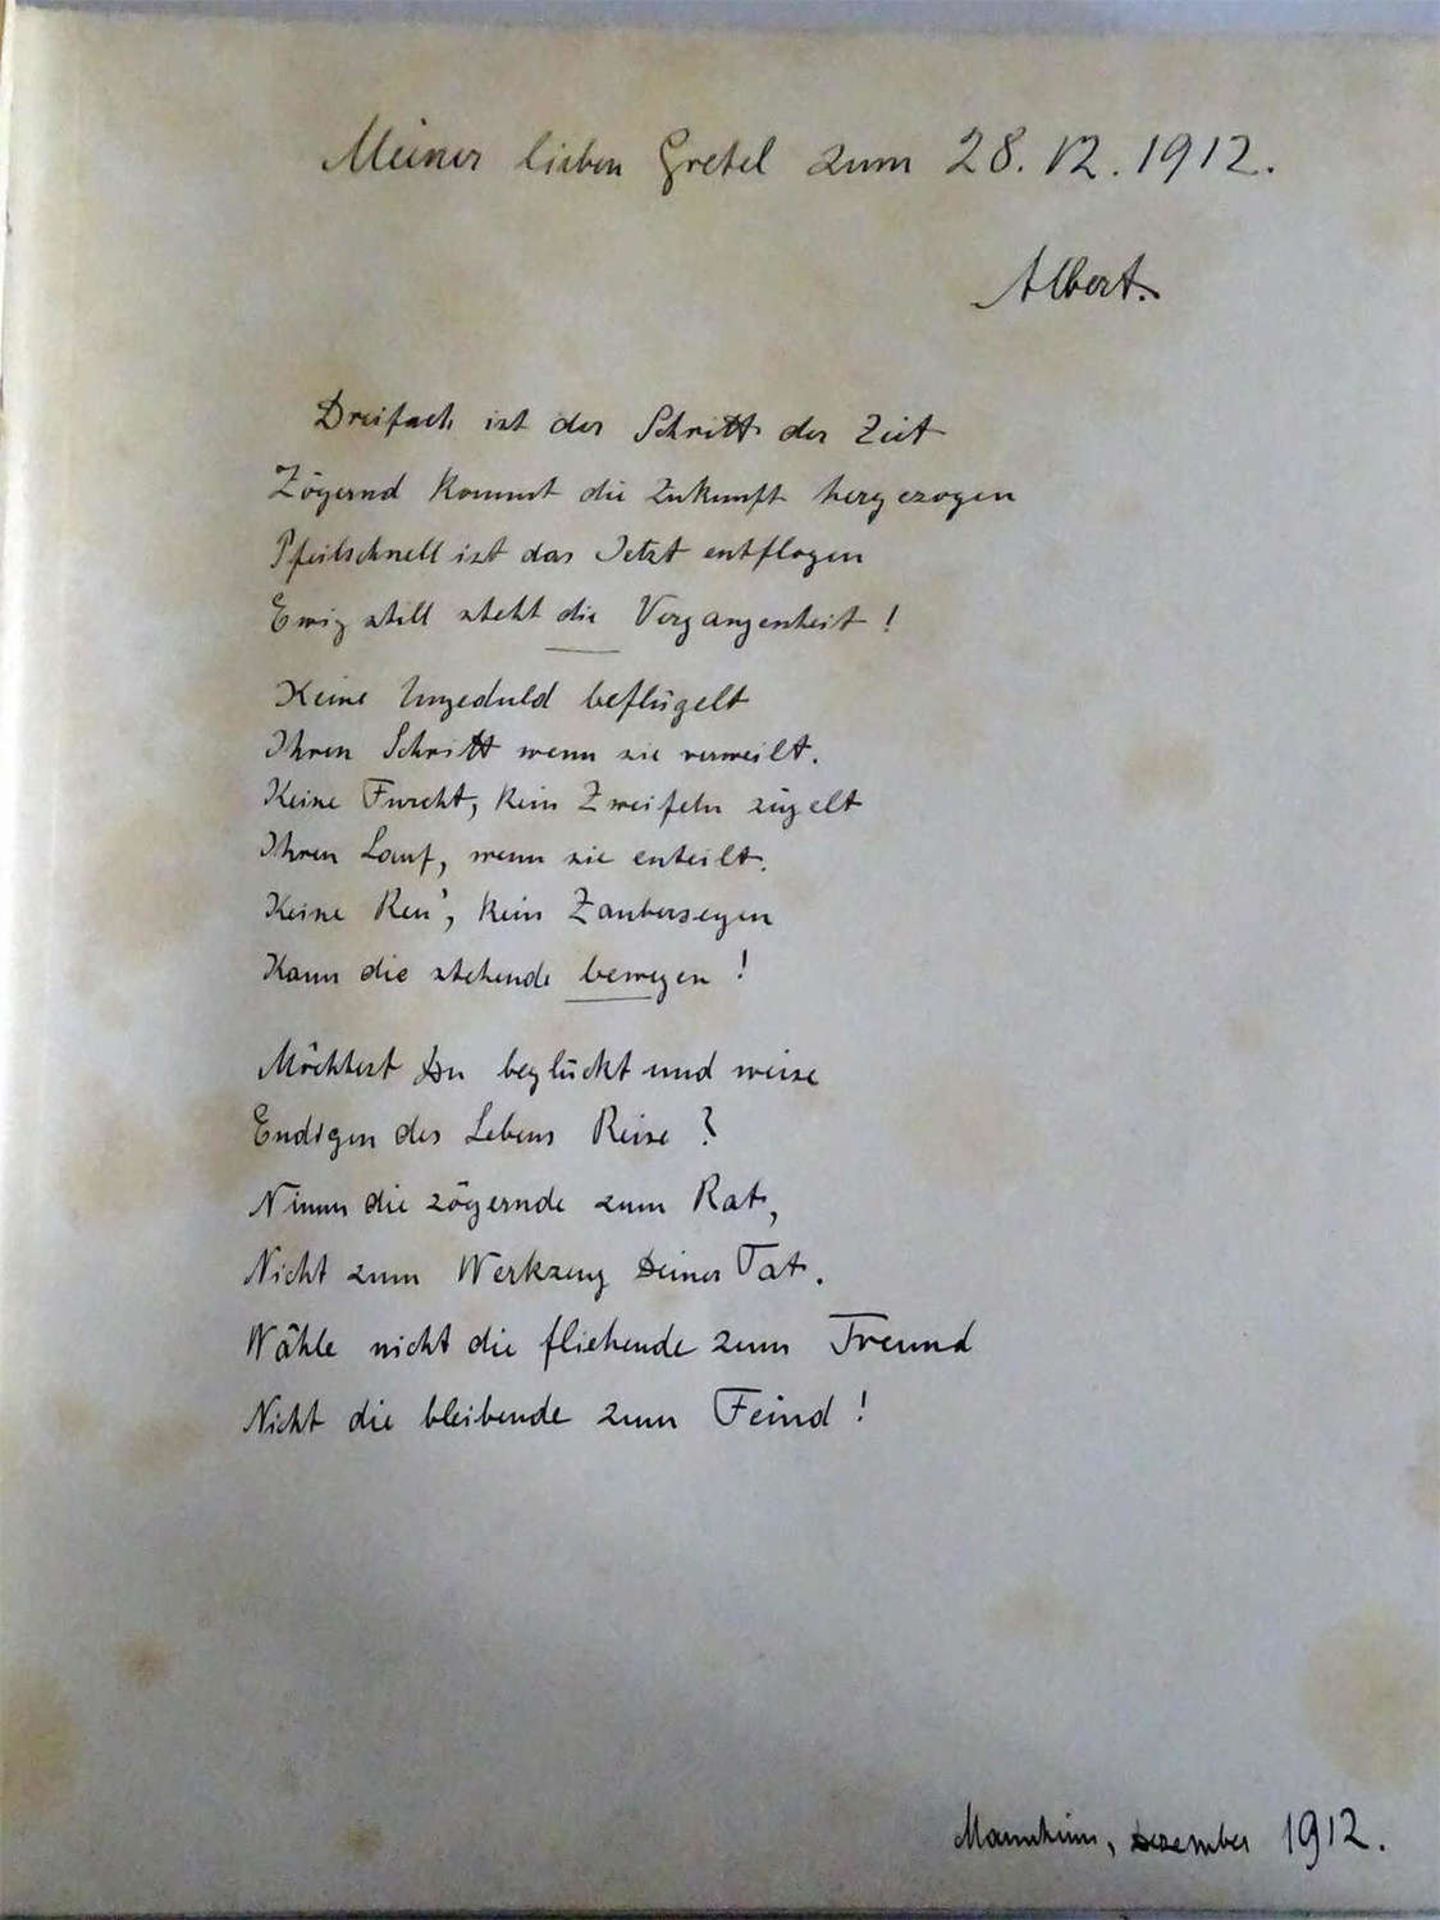 Meiner lieben Gretel zum 28.12.1912.
Albert.
Dreifach ist der Schritt der Zeit
Zögernd kommt die Zukunft hergezogen
Pfeilschnell ist das Jetzt entflogen
Ewig still steht die Vergangenheit!
Keine Ungeduld beflügelt
Ihren Schritt wenn sie verweilt.
Keine Furcht, kein Zweifeln zügelt
Ihren Lauf, wenn sie enteilt.
Keine Reu', kein Zaubersegen
Kann die stehende bewegen!
Möchtest Du beglückt und weise
Endigen des Lebens Reise?
Nimm die zögernde zum Rat,
Nicht zum Werkzeug Deiner Tat.
Wähle nicht die fliehende zum Freund
Nicht die bleibende zum Feind!
Mannheim, Dezember 1912.